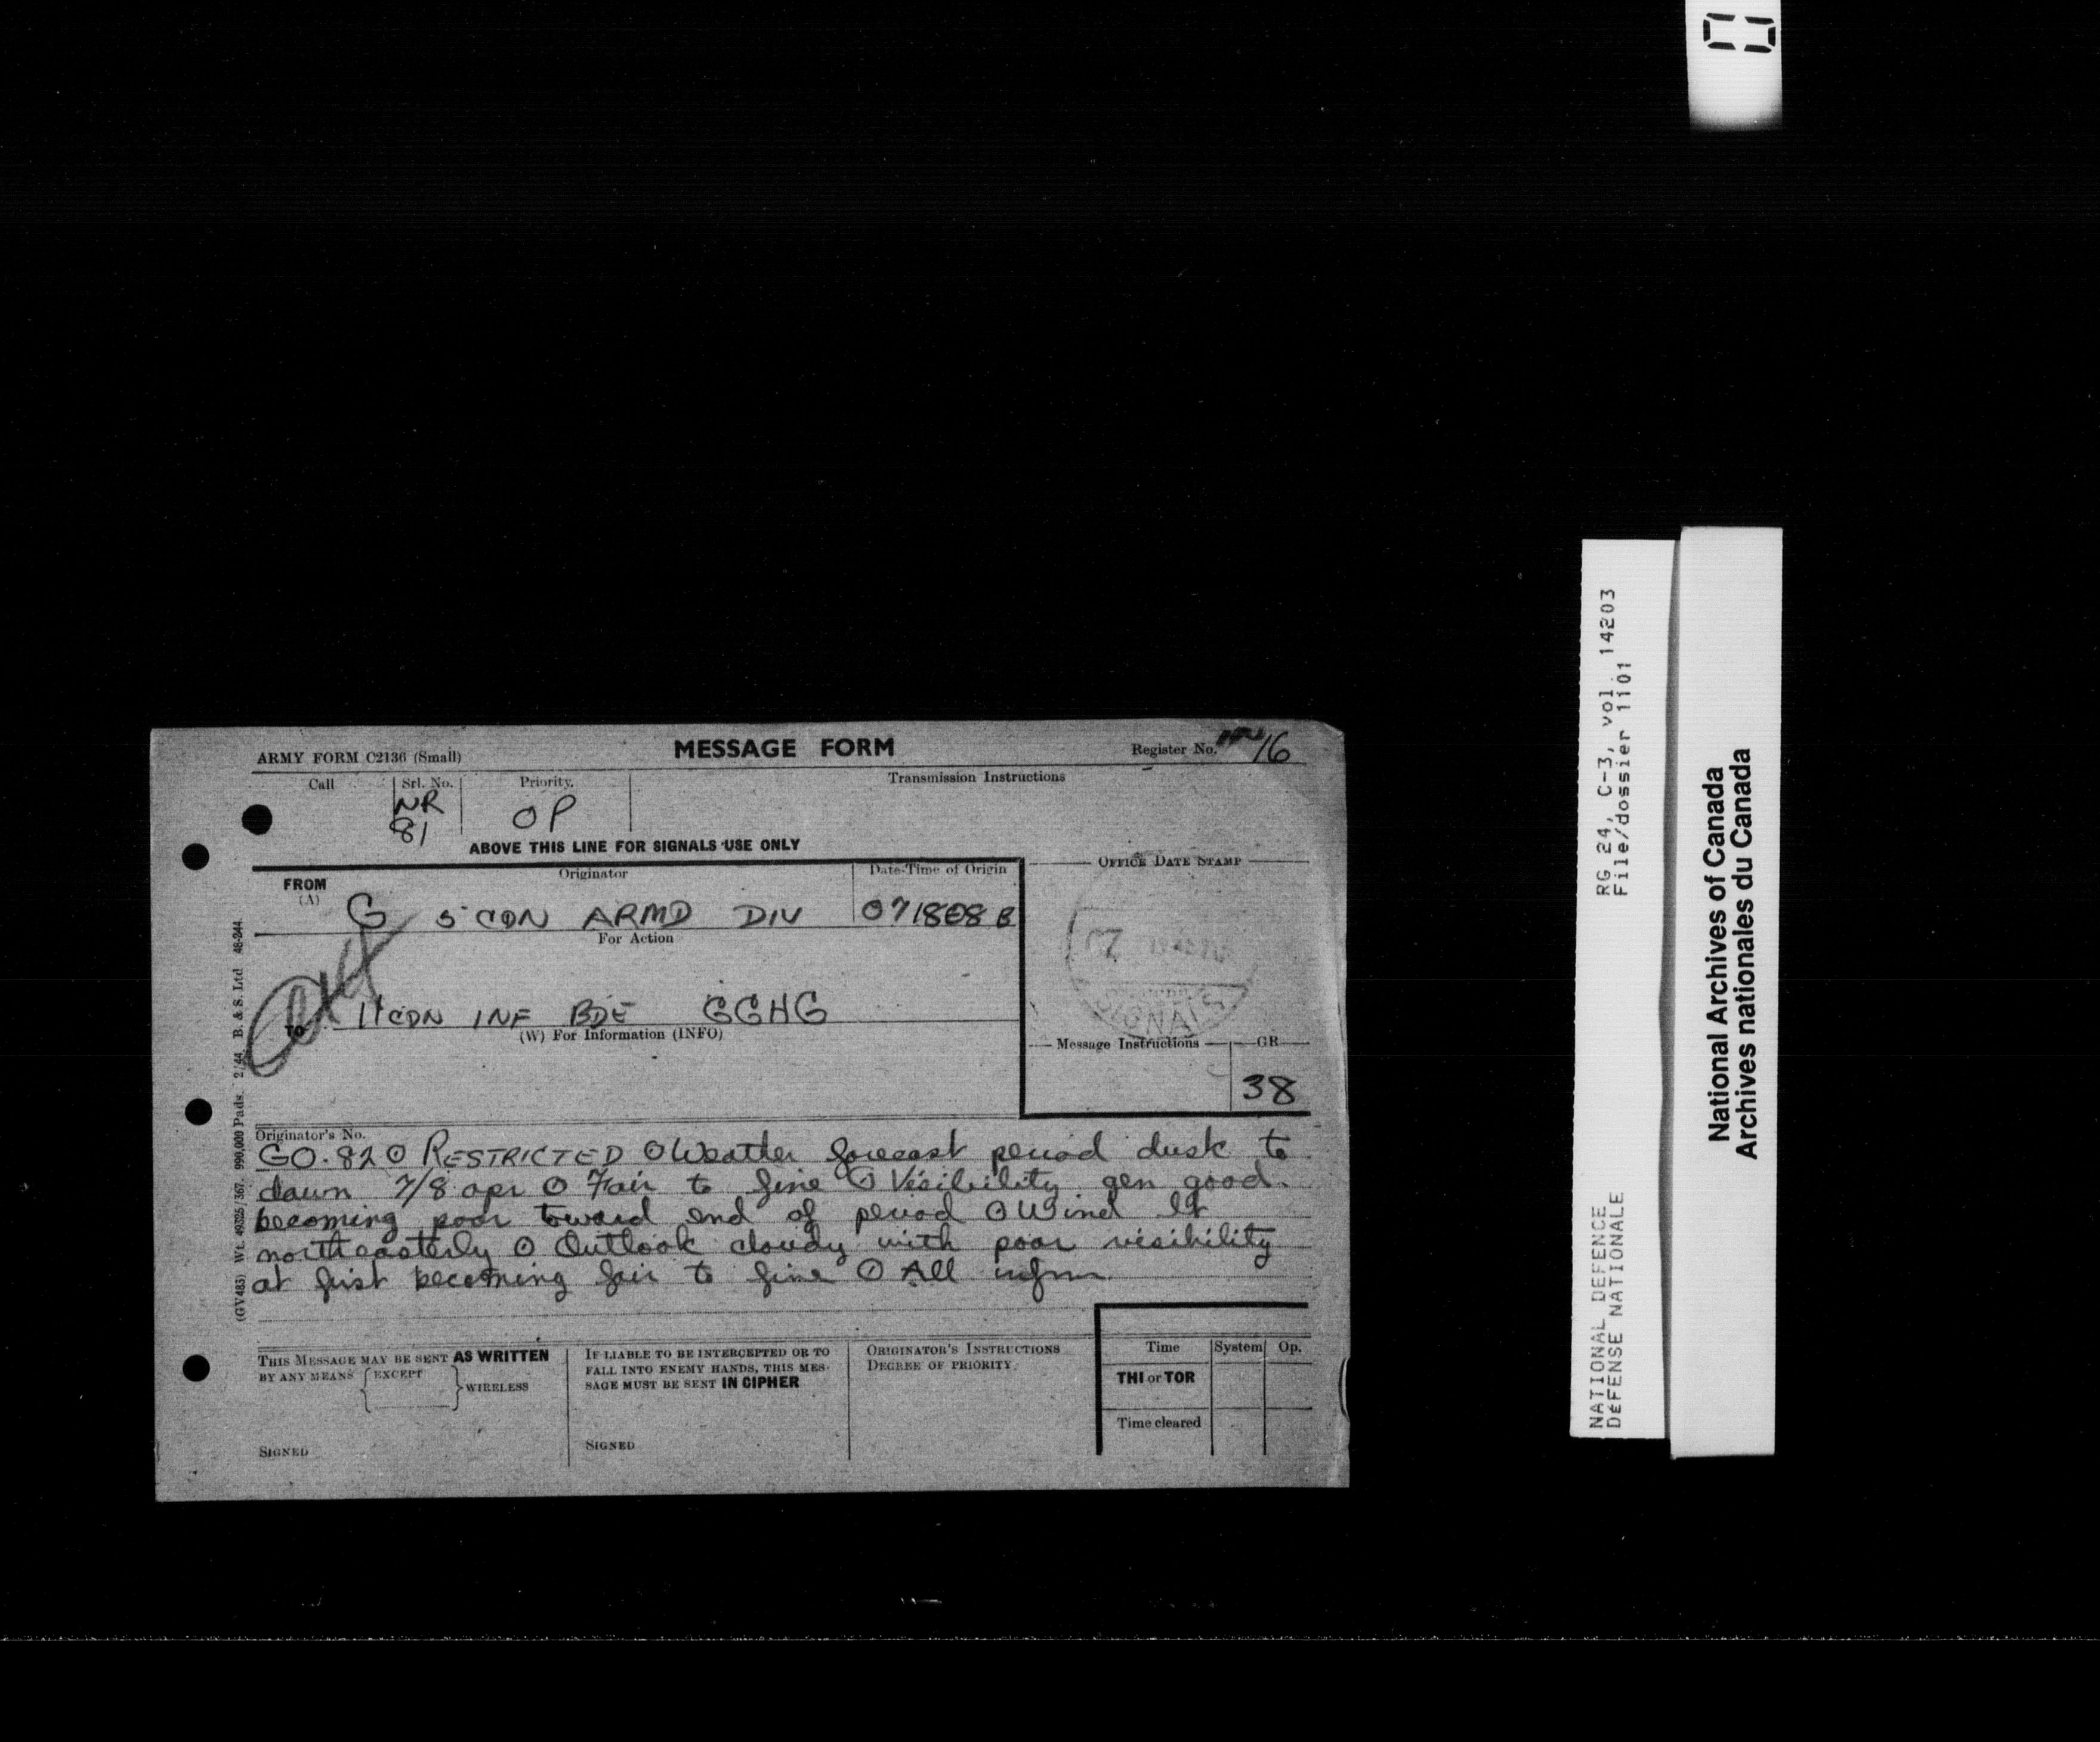 ARMY FORM C2136 (Small)
MESSAGE FORM
Register No. 16
Call
Srl. No.
NR
81
Priority.
OP
Transmission Instructions
ABOVE THIS LINE FOR SIGNALS USE ONLY
FROM
(A)
Originator
G 5 CDN ARMD DIV
Date-Time of Origin
071808 B
OFFICE DATE STAMP
07
SIGNALS
For Action
TO 11 CDN INF BDE GGHG
(W) For Information (INFO)
Message Instructions
GR
38
Originator's No.
GO.82 ⊙ RESTRICTED ⊙ Weather forecast period dusk to
dawn 7/8 apr ⊙ Fair to fine ⊙ Visibility gen good.
becoming poor toward end of period ⊙ Wind lt
northeasterly ⊙ Outlook cloudy with poor visibility
at first becoming fair to fine ⊙ All infm
THIS MESSAGE MAY BE SENT AS WRITTEN
BY ANY MEANS EXCEPT
WIRELESS
SIGNED
IF LIABLE TO BE INTERCEPTED OR TO
FALL INTO ENEMY HANDS, THIS MES-
SAGE MUST BE SENT IN CIPHER
SIGNED
ORIGINATOR'S INSTRUCTIONS
DEGREE OF PRIORITY
Time
System
Op.
THI or TOR
Time cleared
(GV483) Wt. 49325/367. 990,000 Pads. 2/44 B. & S. Ltd 48-244.
RG 24, C-3, vol. 14203
File/dossier 1101
NATIONAL DEFENCE
DÉFENSE NATIONALE
National Archives of Canada
Archives nationales du Canada